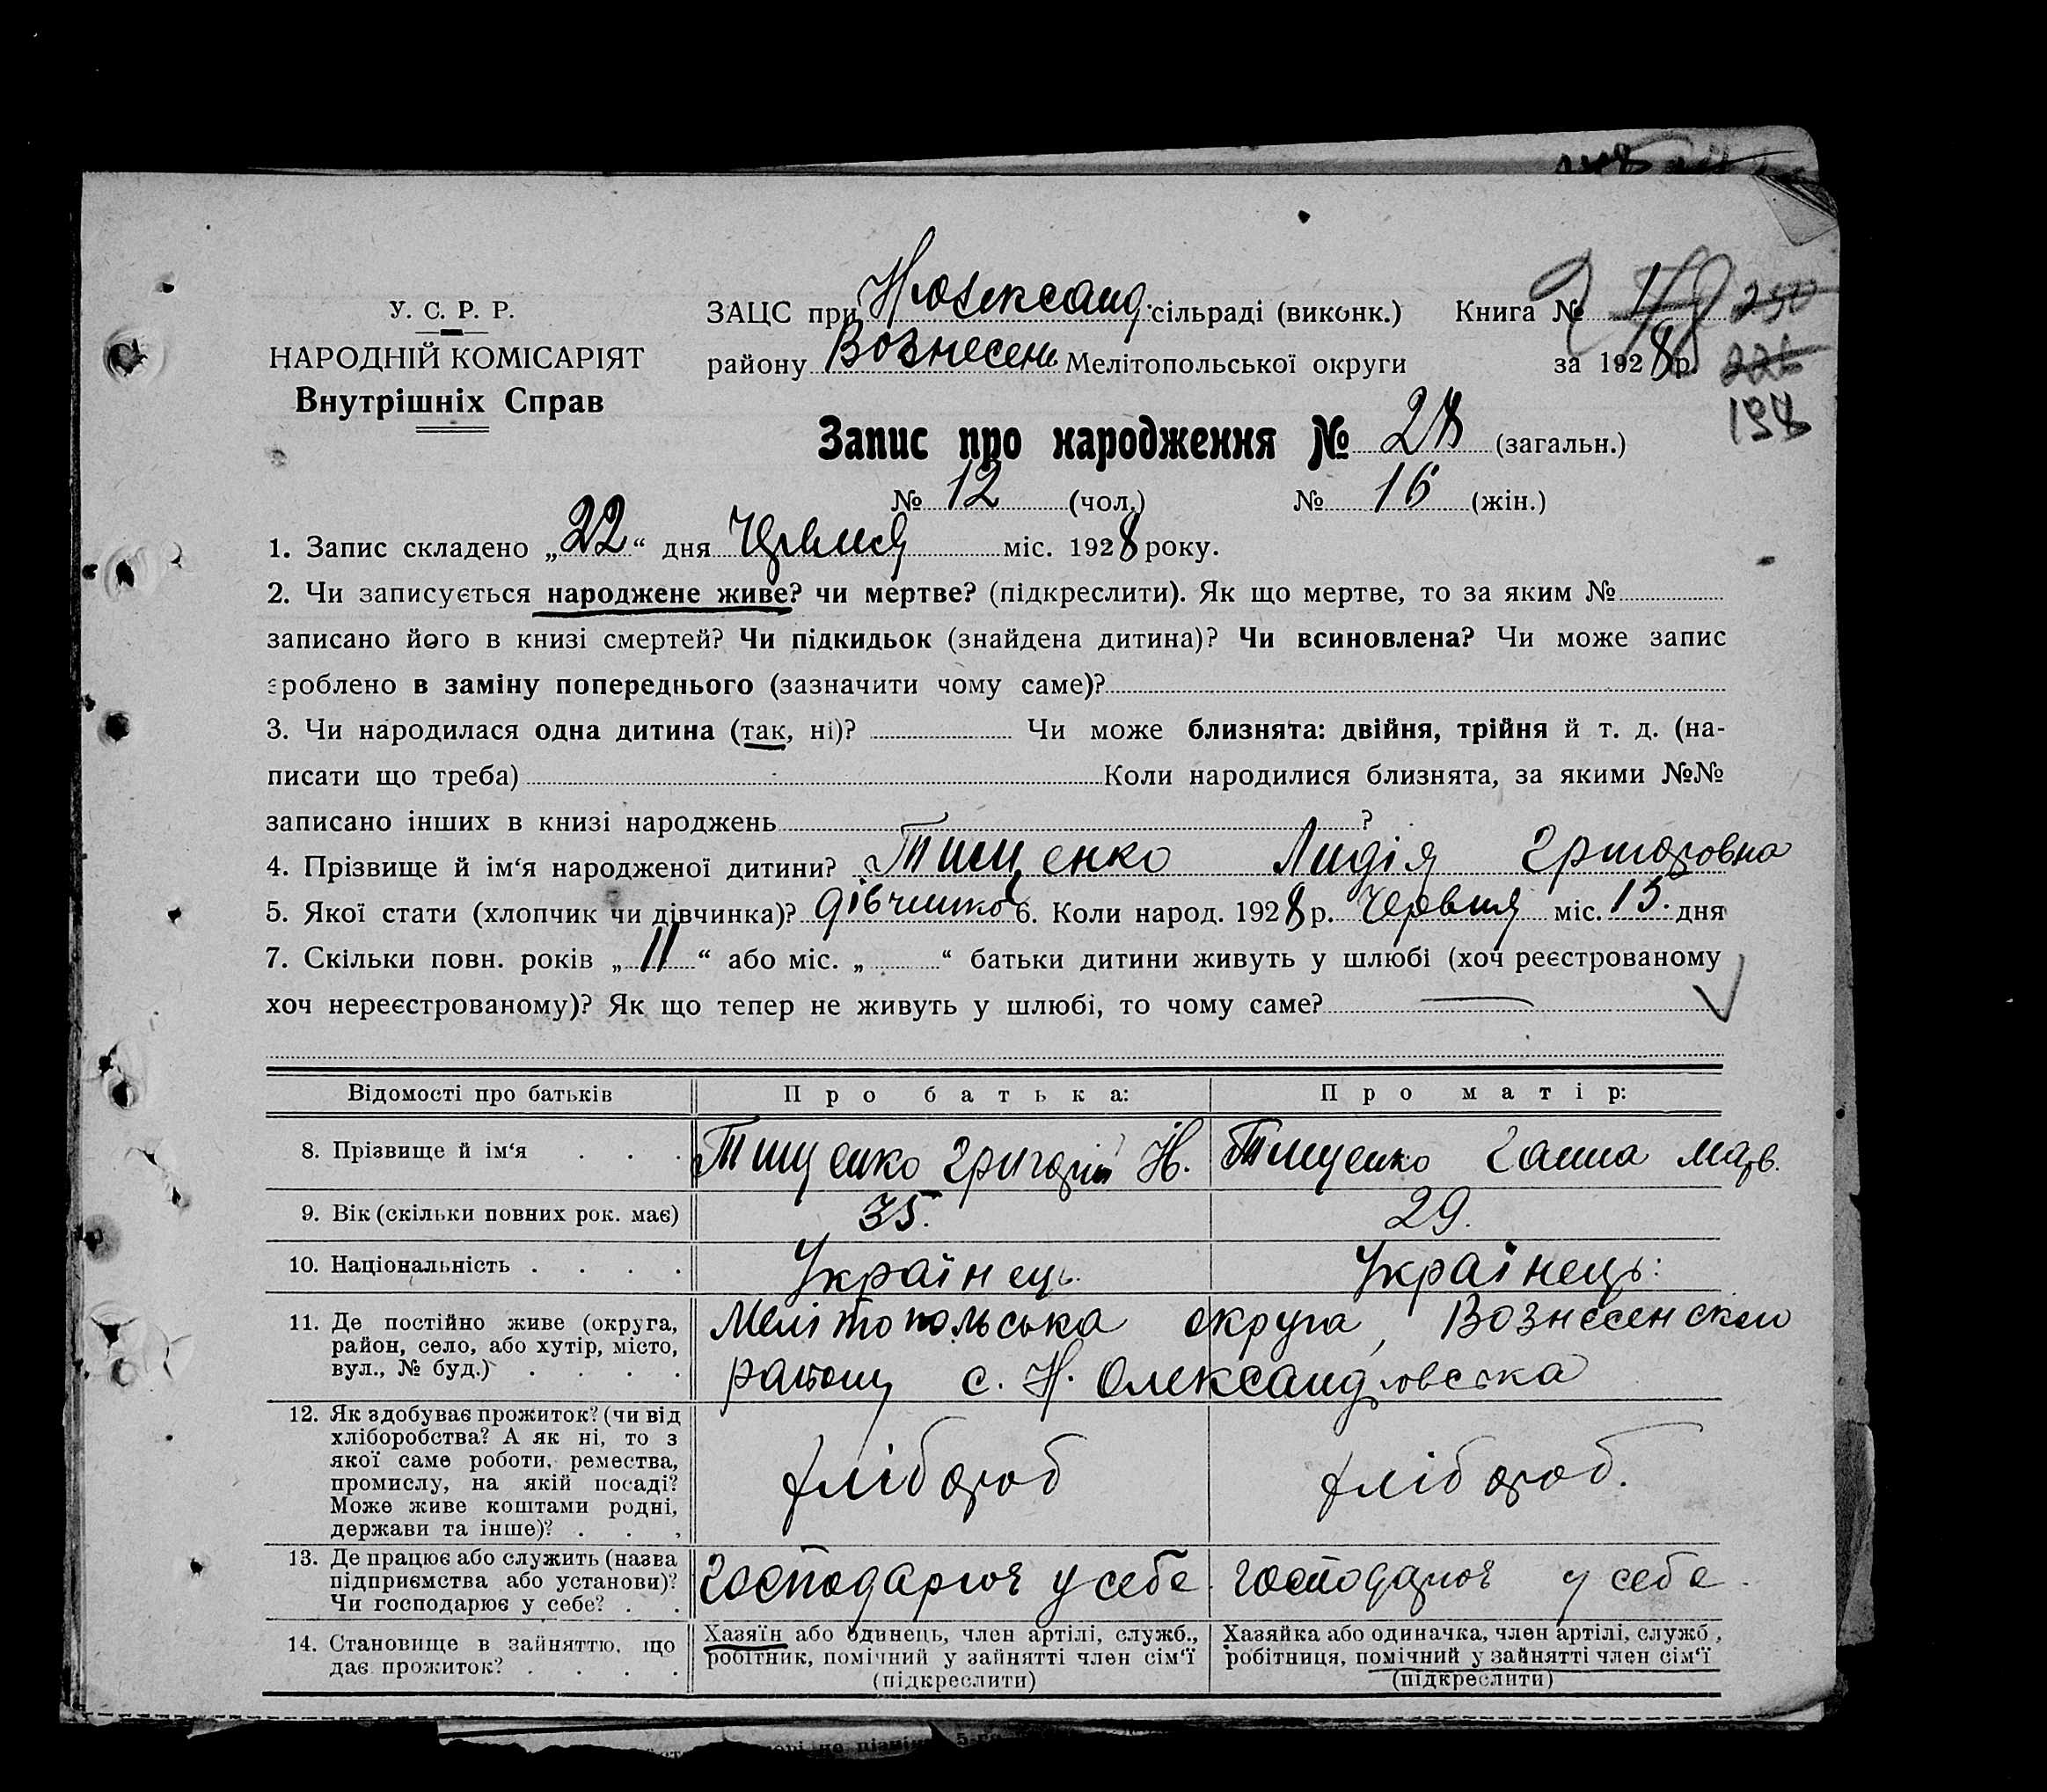 У. С. Р. Р.
НАРОДНІЙ КОМІСАРІЯТ
Внутрішніх Справ
ЗАЦС при Н Олександ. сільраді (виконк.) Книга №
району Вознесень Мелітопольської округи за 1928 р.
250
226
198
Запис про народження № 28 (загальн.)
№ 12 (чол.) № 16 (жін.)
1. Запис складено „22“ дня Червня міс. 1928 року.
2. Чи записується народжене живе? чи мертве? (підкреслити). Як що мертве, то за яким №
записано його в книзі смертей? Чи підкидьок (знайдена дитина)? Чи всиновлена? Чи може запис
зроблено в заміну попереднього (зазначити чому саме)?
3. Чи народилася одна дитина (так, ні)? Чи може близнята: двійня, трійня й т. д. (на-
писати що треба) Коли народилися близнята, за якими №№
записано інших в книзі народжень ?
4. Прізвище й ім‘я народженої дитини? Тищенко Лидія Григоровна
5. Якої стати (хлопчик чи дівчинка)? дівчинка 6. Коли народ. 1928 р. Червня міс. 15. дня
7. Скільки повн. років „11“ або міс. „ “ батьки дитини живуть у шлюбі (хоч реєстрованому
хоч нереєстрованому)? Як що тепер не живуть у шлюбі, то чому саме? —
Відомості про батьків Про батька: Про матір:
8. Прізвище й ім‘я . . . Тищенко Григорій Н. Тищенко Ганна Марв.
9. Вік (скільки повних рок. має) 35. 29.
10. Національність . . . . Українець. Українець:
11. Де постійно живе (округа,
район, село, або хутір, місто,
вул., № буд.) . . . .
Мелітопольська округа, Вознесенского
району с. Н. Олександровська
12. Як здобуває прожиток? (чи від
хліборобства? А як ні, то з
якої саме роботи, ремества,
промислу, на якій посаді?
Може живе коштами родні,
держави та інше)? . . .
хлібороб хлібороб.
13. Де працює або служить (назва
підприємства або установи)?
Чи господарює у себе? . .
господарює у себе. господарює у себе.
14. Становище в зайняттю, що
дає прожиток? . . . .
Хазяїн або одинець, член артілі, служб.,
робітник, помічний у зайнятті член сім‘ї
(підкреслити)
Хазяйка або одиначка, член артілі, служб.,
робітниця, помічний у зайнятті член сім‘ї
(підкреслити)